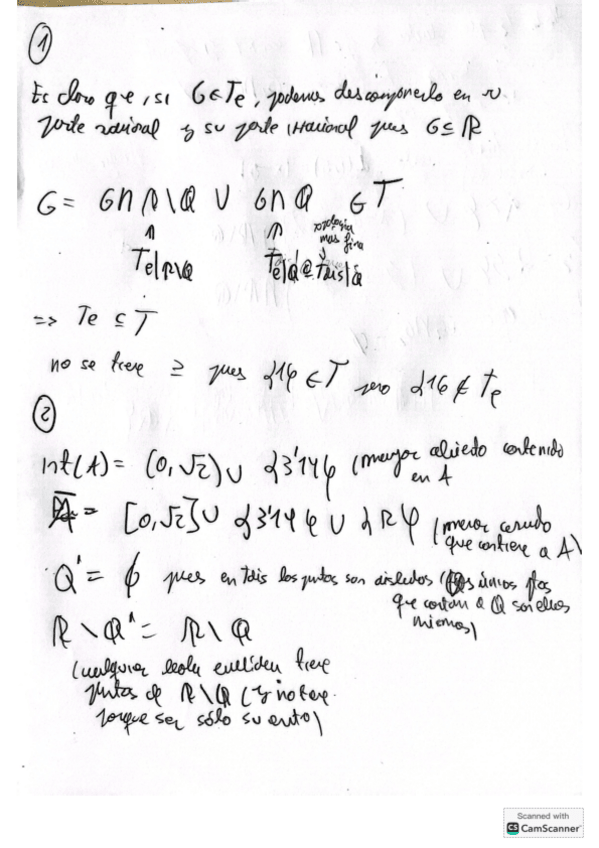 1
Es claro que, si G∈Te, podemos descomponerlo en
parte racional y su parte irracional pues G⊆ℝ
G = G∩ℝ\ℚ ∪ G∩ℚ ∈T
topología
mas fina
Te|ℝ\ℚ Te|ℚ Tdis|ℚ
=> Te ⊆ T
no se tiene ⊇ pues {1} ∈ T pero {1} ∉ Te
2
int(A) = (0,√2) ∪ {3'14} (mayor abierto contenido
en A
= [0,√2] ∪ {3'14} ∪ {π} (menor cerrado
que contiene a A)
ℚ' = ∅ pues en Tdis los puntos son aislados (los únicos ptos
que cortan a ℚ son ellos
mismos)
ℝ\ℚ' = ℝ\ℚ
(cualquier bola euclídea tiene
puntos de ℝ\ℚ (y no tiene
porque ser sólo su centro)
Scanned with
CS CamScanner